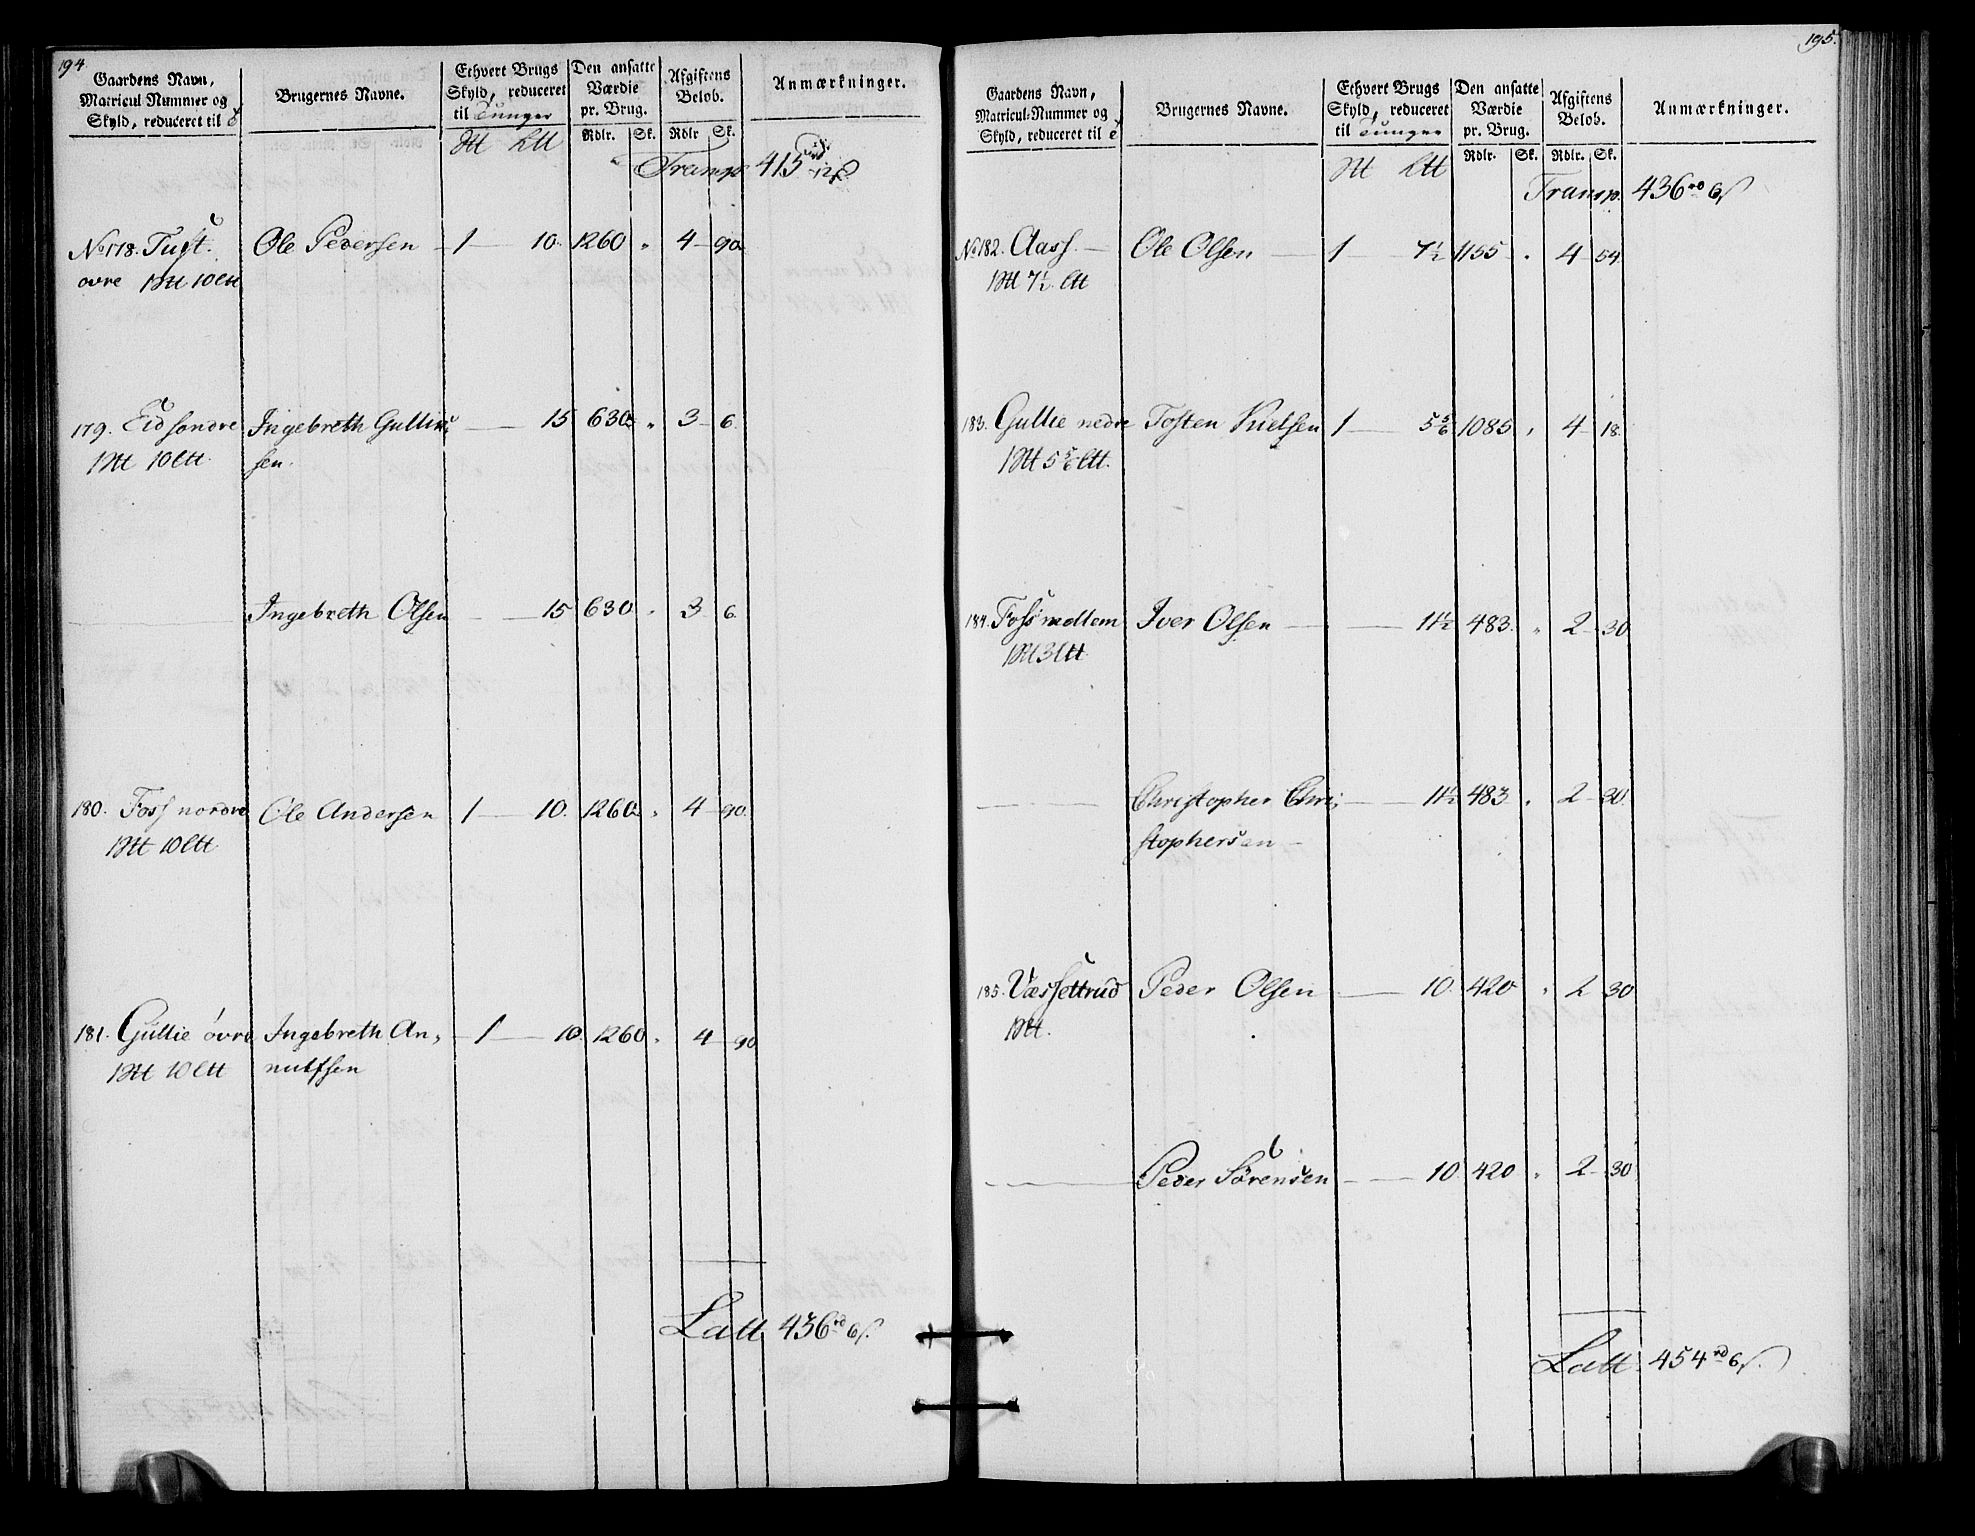 194.
Gaardens Navn, Matricul Nummer og Skyld, reduceret til
Brugernes Navne.
Ethvert Brugs Skyld, reduceret til Tunger
Den ansatte Værdie pr. Brug.
Afgiftens Belob.
Anmærkninger.
Rdlr. Sk. Rdlr Sk.
Transp. 415 rd 12 s
No 178. Tuft. Ole Pedersen 1 10. 1260 " 4 90
ovre 1 Htt 10 ltt
179. Eid søndre Ingebreth Gullix 15 630 " 3 6.
1 Htt 10 ltt sen.
Ingebreth Olsen 15 630 " 3 6
180. Foss nordre Ole Andersen 1 10. 1260 " 4 90.
1 Htt 10 ltt
181. Gullie øvre Ingebreth An, 1 10 1260 " 4 90
1 Htt 10 ltt nulfsen
Latt 436 rd 6 s.
195.
Gaardens Navn, Matricul-Nummer og Skyld, reduceret til
Brugernes Navne.
Ethvert Brugs Skyld, reduceret til Tunger
Den ansatte Værdie pr. Brug.
Afgiftens Belob.
Anmærkninger.
Rdlr. Sk. Rdlr. Sk.
Transp. 436 rd 6 s
No 182. Aass. Ole Olsen 1 7½ 1155 " 4 54
1 Htt 7½ ltt
183. Gullie nedre Tosten Nielsen 1 5⅚ 1085 " 4 18.
1 Htt 5⅚ ltt.
184. Foss mellem Iver Olsen 11½ 483. " 2 30
1 Htt 3 ltt
Christopher Chri, 11½ 483 " 2 30.
stophersen
185. Væssettrud Peder Olsen 10. 420 " 2 30
1 Htt.
Peder Sørensen 10 420 " 2 30
Latt 454 rd 6 s.